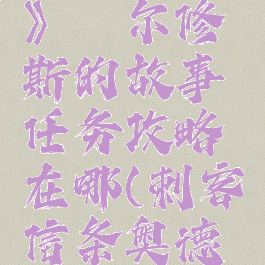 》 尔修
斯的故事
任务攻略
在哪(刺客
信条奥德